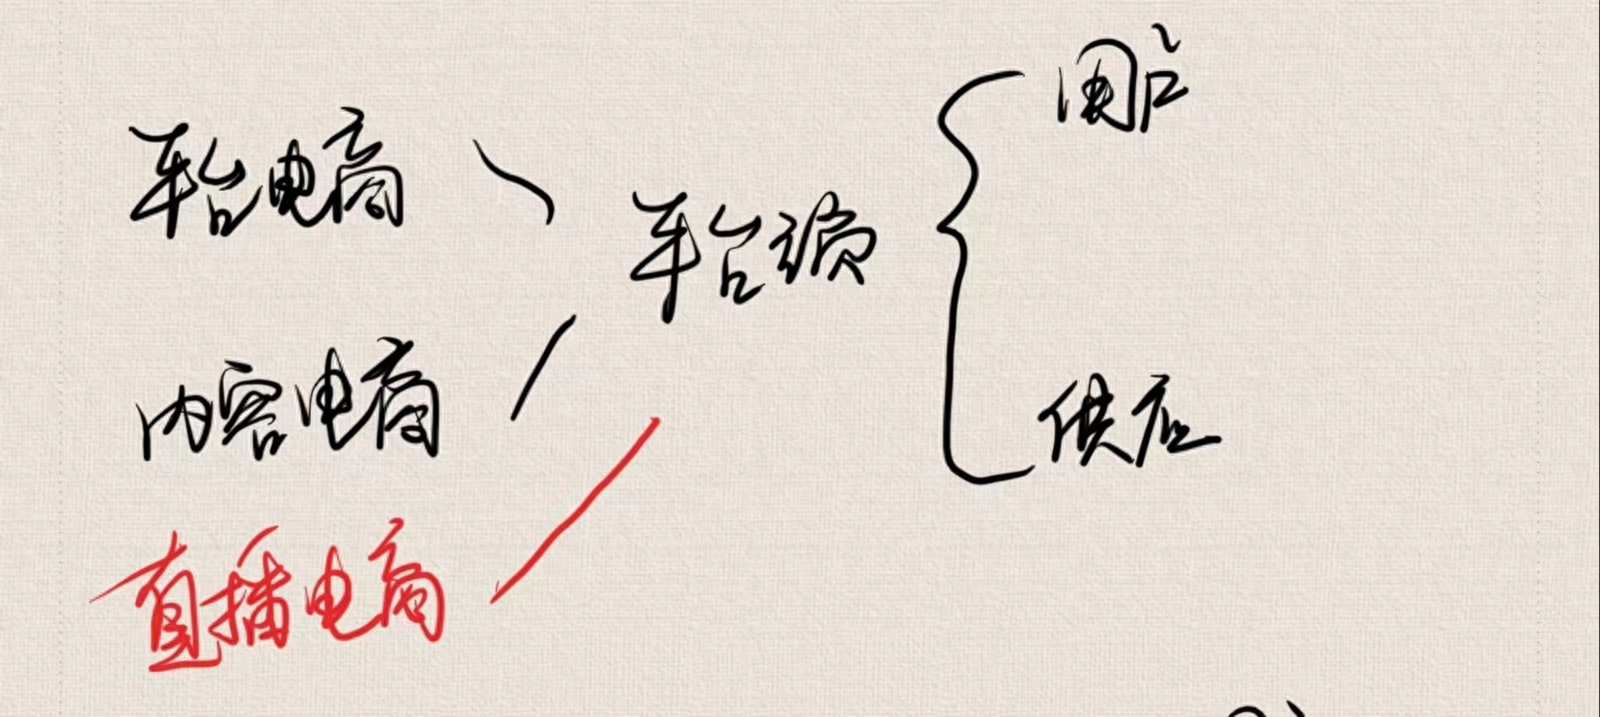 平台电商
内容电商
直播电商
平台
用户
供应